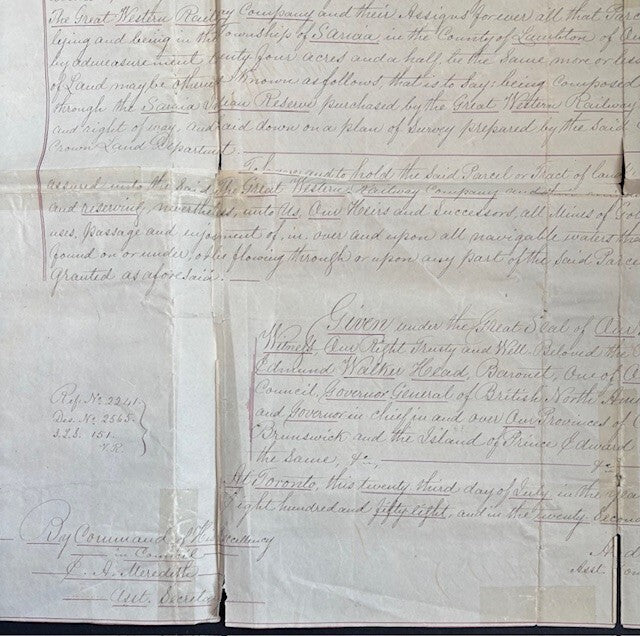 The Great Western Railway Company and their Assigns forever all that Par
lying and being in the Township of Sarnia, in the County of Lambton, of Our
by admeasurement twenty four acres and a half, be the Same, more or less
of Land may be otherwise Known as follows, that is to Say: being composed
through the Sarnia Indian Reserve purchased by the Great Western Railway
and right of way, and laid down on a plan of Survey prepared by the Said
Crown Land Department.
To have and to hold the Said Parcel or Tract of land
assured unto the Said The Great Western Railway Company and
and reserving, nevertheless, unto Us, Our Heirs and Successors, all Mines of Go
uses, passage and enjoyment of, in, over and upon all navigable waters th
found on or under, or be flowing through or upon any part of the Said Parce
Granted as aforesaid.
Given under the Great Seal of Our
Witness, Our Right Trusty and Well Beloved the
Edmund Walker Head, Baronet, One of
Council, Governor General of British North Ame
and Governor in chief in and over Our Provinces of
Brunswick and the Island of Prince Edward
the Same, &c., &c
At Toronto, this twenty third day of July, in the yea
Eight hundred and fifty eight, and in the twenty Secon
Ref. No. 2241.
Des. No. 2565.
151.
By Command of His Excellency
in Council
E. A. Meredith
Asst. Secreta
Asst.